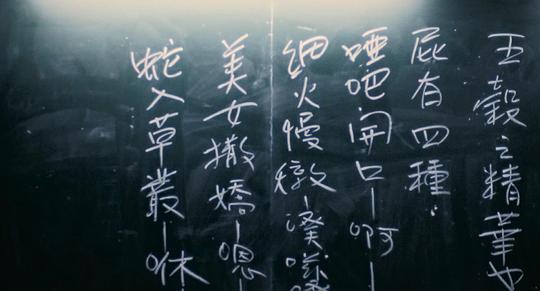 五穀之精華也
屁有四種：
啞吧開口－啊－
細火慢燉－潑
美女撒嬌－嗯－
蛇入草叢－咻